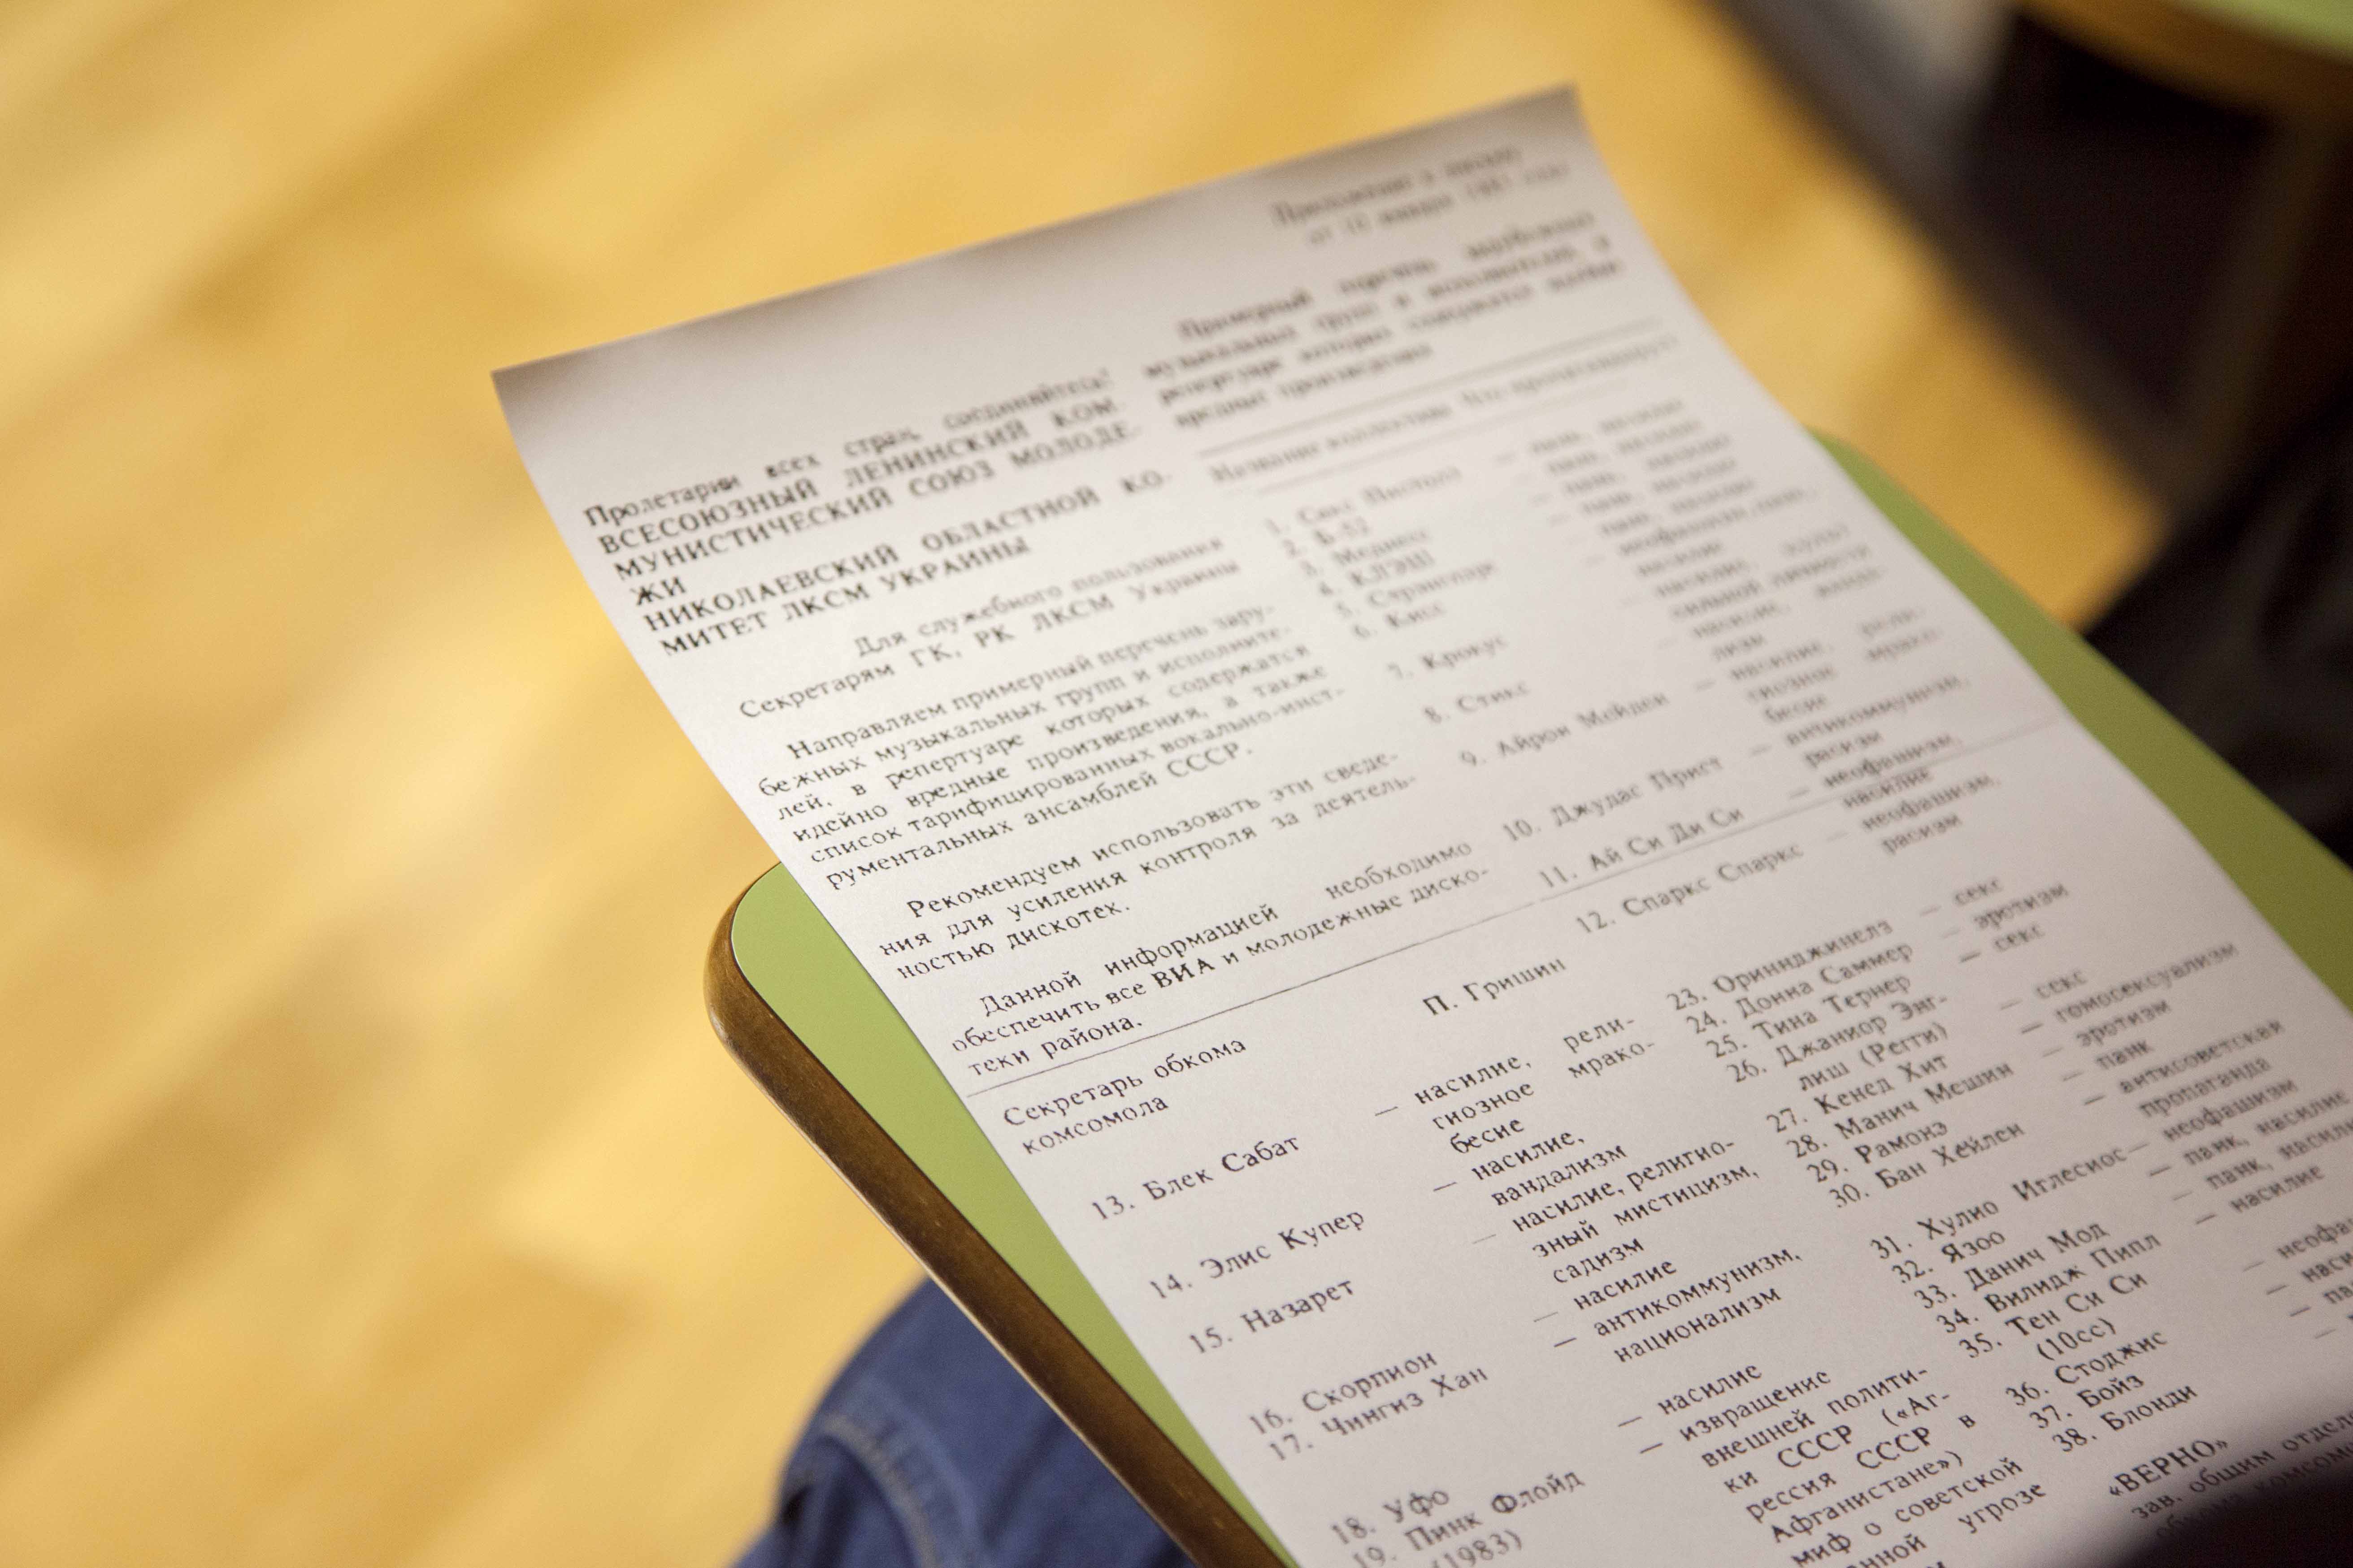 Пролетарии всех стран, соединяйтесь!
ВСЕСОЮЗНЫЙ ЛЕНИНСКИЙ КОМ-
МУНИСТИЧЕСКИЙ СОЮЗ МОЛОДЕ-
ЖИ
НИКОЛАЕВСКИЙ ОБЛАСТНОЙ КО-
МИТЕТ ЛКСМ УКРАИНЫ
Для служебного пользования
Секретарям ГК, РК ЛКСМ Украины
Направляем примерный перечень зару-
бежных музыкальных групп и исполните-
лей, в репертуаре которых содержатся
идейно вредные произведения, а также
список тарифицированных вокально-инст-
рументальных ансамблей СССР.
Рекомендуем использовать эти сведе-
ния для усиления контроля за деятель-
ностью дискотек.
Данной информацией необходимо
обеспечить все ВИА и молодежные диско-
теки района.
Секретарь обкома
комсомола
П. Гришин
Приложение к письму
Примерный перечень зарубежных
музыкальных групп и исполнителей, в
репертуаре которых содержатся идейно
вредные произведения
Название коллектива Что пропагандирует
1. Секс Пистолз — панк, насилие
2. Б-52 — панк, насилие
3. Меднесс — панк, насилие
4. КЛЭШ — панк, насилие
5. Стрэнглерс — панк, насилие
6. Кисс — неофашизм, панк,
насилие
7. Крокус — насилие, культ
сильной личности
8. Стикс — насилие, ванда-
лизм
9. Айрон Мейден — насилие, рели-
гиозное мрако-
бесие
10. Джудас Прист — антикоммунизм,
расизм
11. Ай Си Ди Си — неофашизм,
насилие
12. Спаркс Спаркс — неофашизм,
расизм
13. Блек Сабат — насилие, рели-
гиозное мрако-
бесие
14. Элис Купер — насилие,
вандализм
15. Назарет — насилие, религио-
зный мистицизм,
садизм
16. Скорпион — насилие
17. Чингиз Хан — антикоммунизм,
национализм
18. Уфо — насилие
19. Пинк Флойд — извращение
(1983) внешней полити-
ки СССР («Аг-
рессия СССР в
Афганистане»)
миф о советской
угрозе
23. Ориннджинелз — секс
24. Донна Саммер — эротизм
25. Тина Тернер — секс
26. Джаниор Энг-
лиш (Регги) — секс
27. Кенед Хит — гомосексуализм
28. Манич Мешин — эротизм
29. Рамонэ — панк
30. Бан Хейлен — антисоветская
пропаганда
31. Хулио Иглесиос — неофашизм
32. Язоо — панк, насилие
33. Данич Мод — панк,
34. Вилидж Пипл — насилие
35. Тен Си Си
(10сс)
36. Стоджис
37. Бойз
38. Блонди
«ВЕРНО»
зав. общим